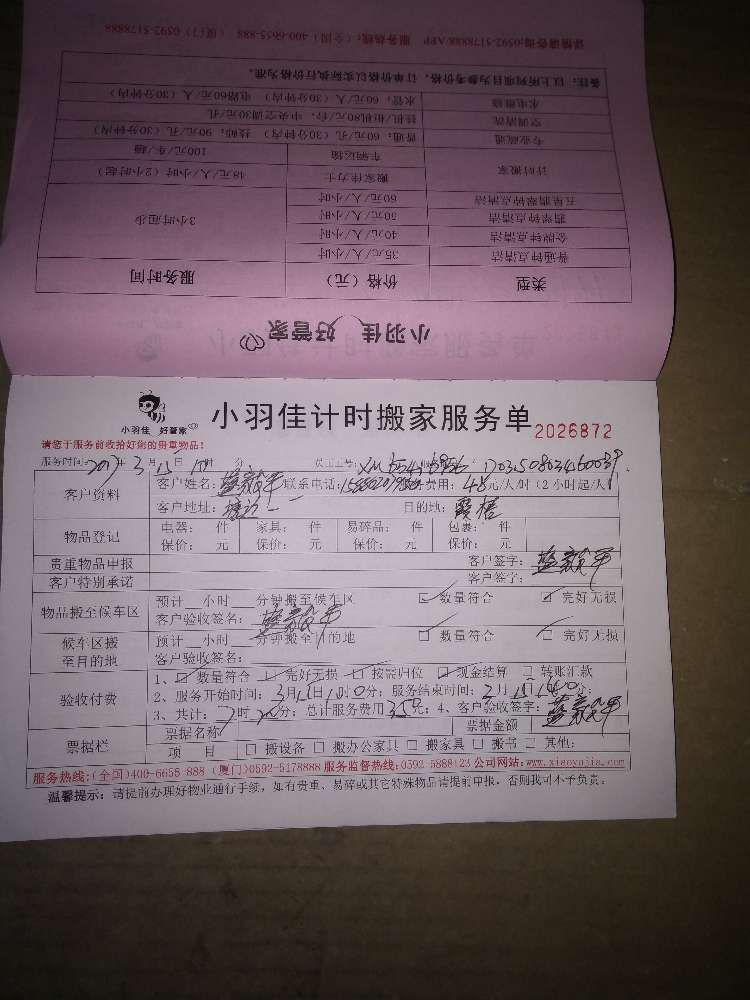 详情请咨询:0592-5178888/APP 服务热线:（全国）400-6655-888 （厦门）0592-5178888
备注：以上所列项目为参考价格，订单价格以实际执行价格为准。
水电维修 水管：60元/人（30分钟内） 电路60元/人（30分钟内）
空调清洗 挂机/柜机80元/台，中央空调30元/孔
专业疏通 普通：60元/孔（30分钟内） 技师：90元/孔（30分钟）
计时搬家 车辆运输 100元/车/趟
搬家佳力士 48元/人/小时（2小时起）
五星翡翠钟点清洁 60元/人/小时
翡翠钟点清洁 50元/人/小时
金牌钟点清洁 40元/人/小时
普通钟点清洁 35元/人/小时
3小时起步
类型 价格（元） 服务时间
小羽佳 好管家
小羽佳 好管家
小羽佳计时搬家服务单
2026872
请您于服务前收拾好您的贵重物品！
服务时间: 2017年 3月 15日 时 分
客户资料 客户姓名: 联系电话: 服务费用: 48元/人/时（2小时起/人）
客户地址: 目的地:
物品登记 电器: 件 家具: 件 易碎品: 件 包裹: 件
保价: 元 保价: 元 保价: 元 保价: 元
贵重物品申报 客户签字:
客户特别承诺 客户签字:
物品搬至候车区 预计__小时__分钟搬至候车区 数量符合 完好无损
客户验收签名:
候车区搬至目的地 预计__小时__分钟搬至目的地 数量符合 完好无损
客户验收签名:
验收付费 1、数量符合 完好无损 按需归位 现金结算 转账汇款
2、服务开始时间: 3月15日 时 0分; 服务结束时间: 月 日 时 分;
3、共计: 时 分; 总计服务费用 350元; 4、客户验收签字:
票据栏 票据名称 票据金额
项 目 搬设备 搬办公家具 搬家具 搬书 其他:
服务热线:(全国)400-6655 888 (厦门)0592-5178888 服务监督热线:0592 5888123 公司网站:www.xiaoyujia.com
温馨提示: 请提前办理好物业通行手续，如有贵重、易碎或其它特殊物品请提前申报，否则我司不予负责。